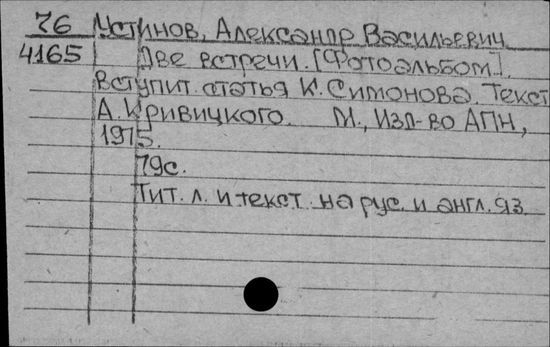 76 Устинов, Александр Васильевич
4165 Две встречи. [Фотоальбом].
Вступит. статья К. Симонова. Текст
А. Кривицкого. М., Изд-во АПН,
1975.
79с.
Тит. л. и текст на рус. и англ. яз.